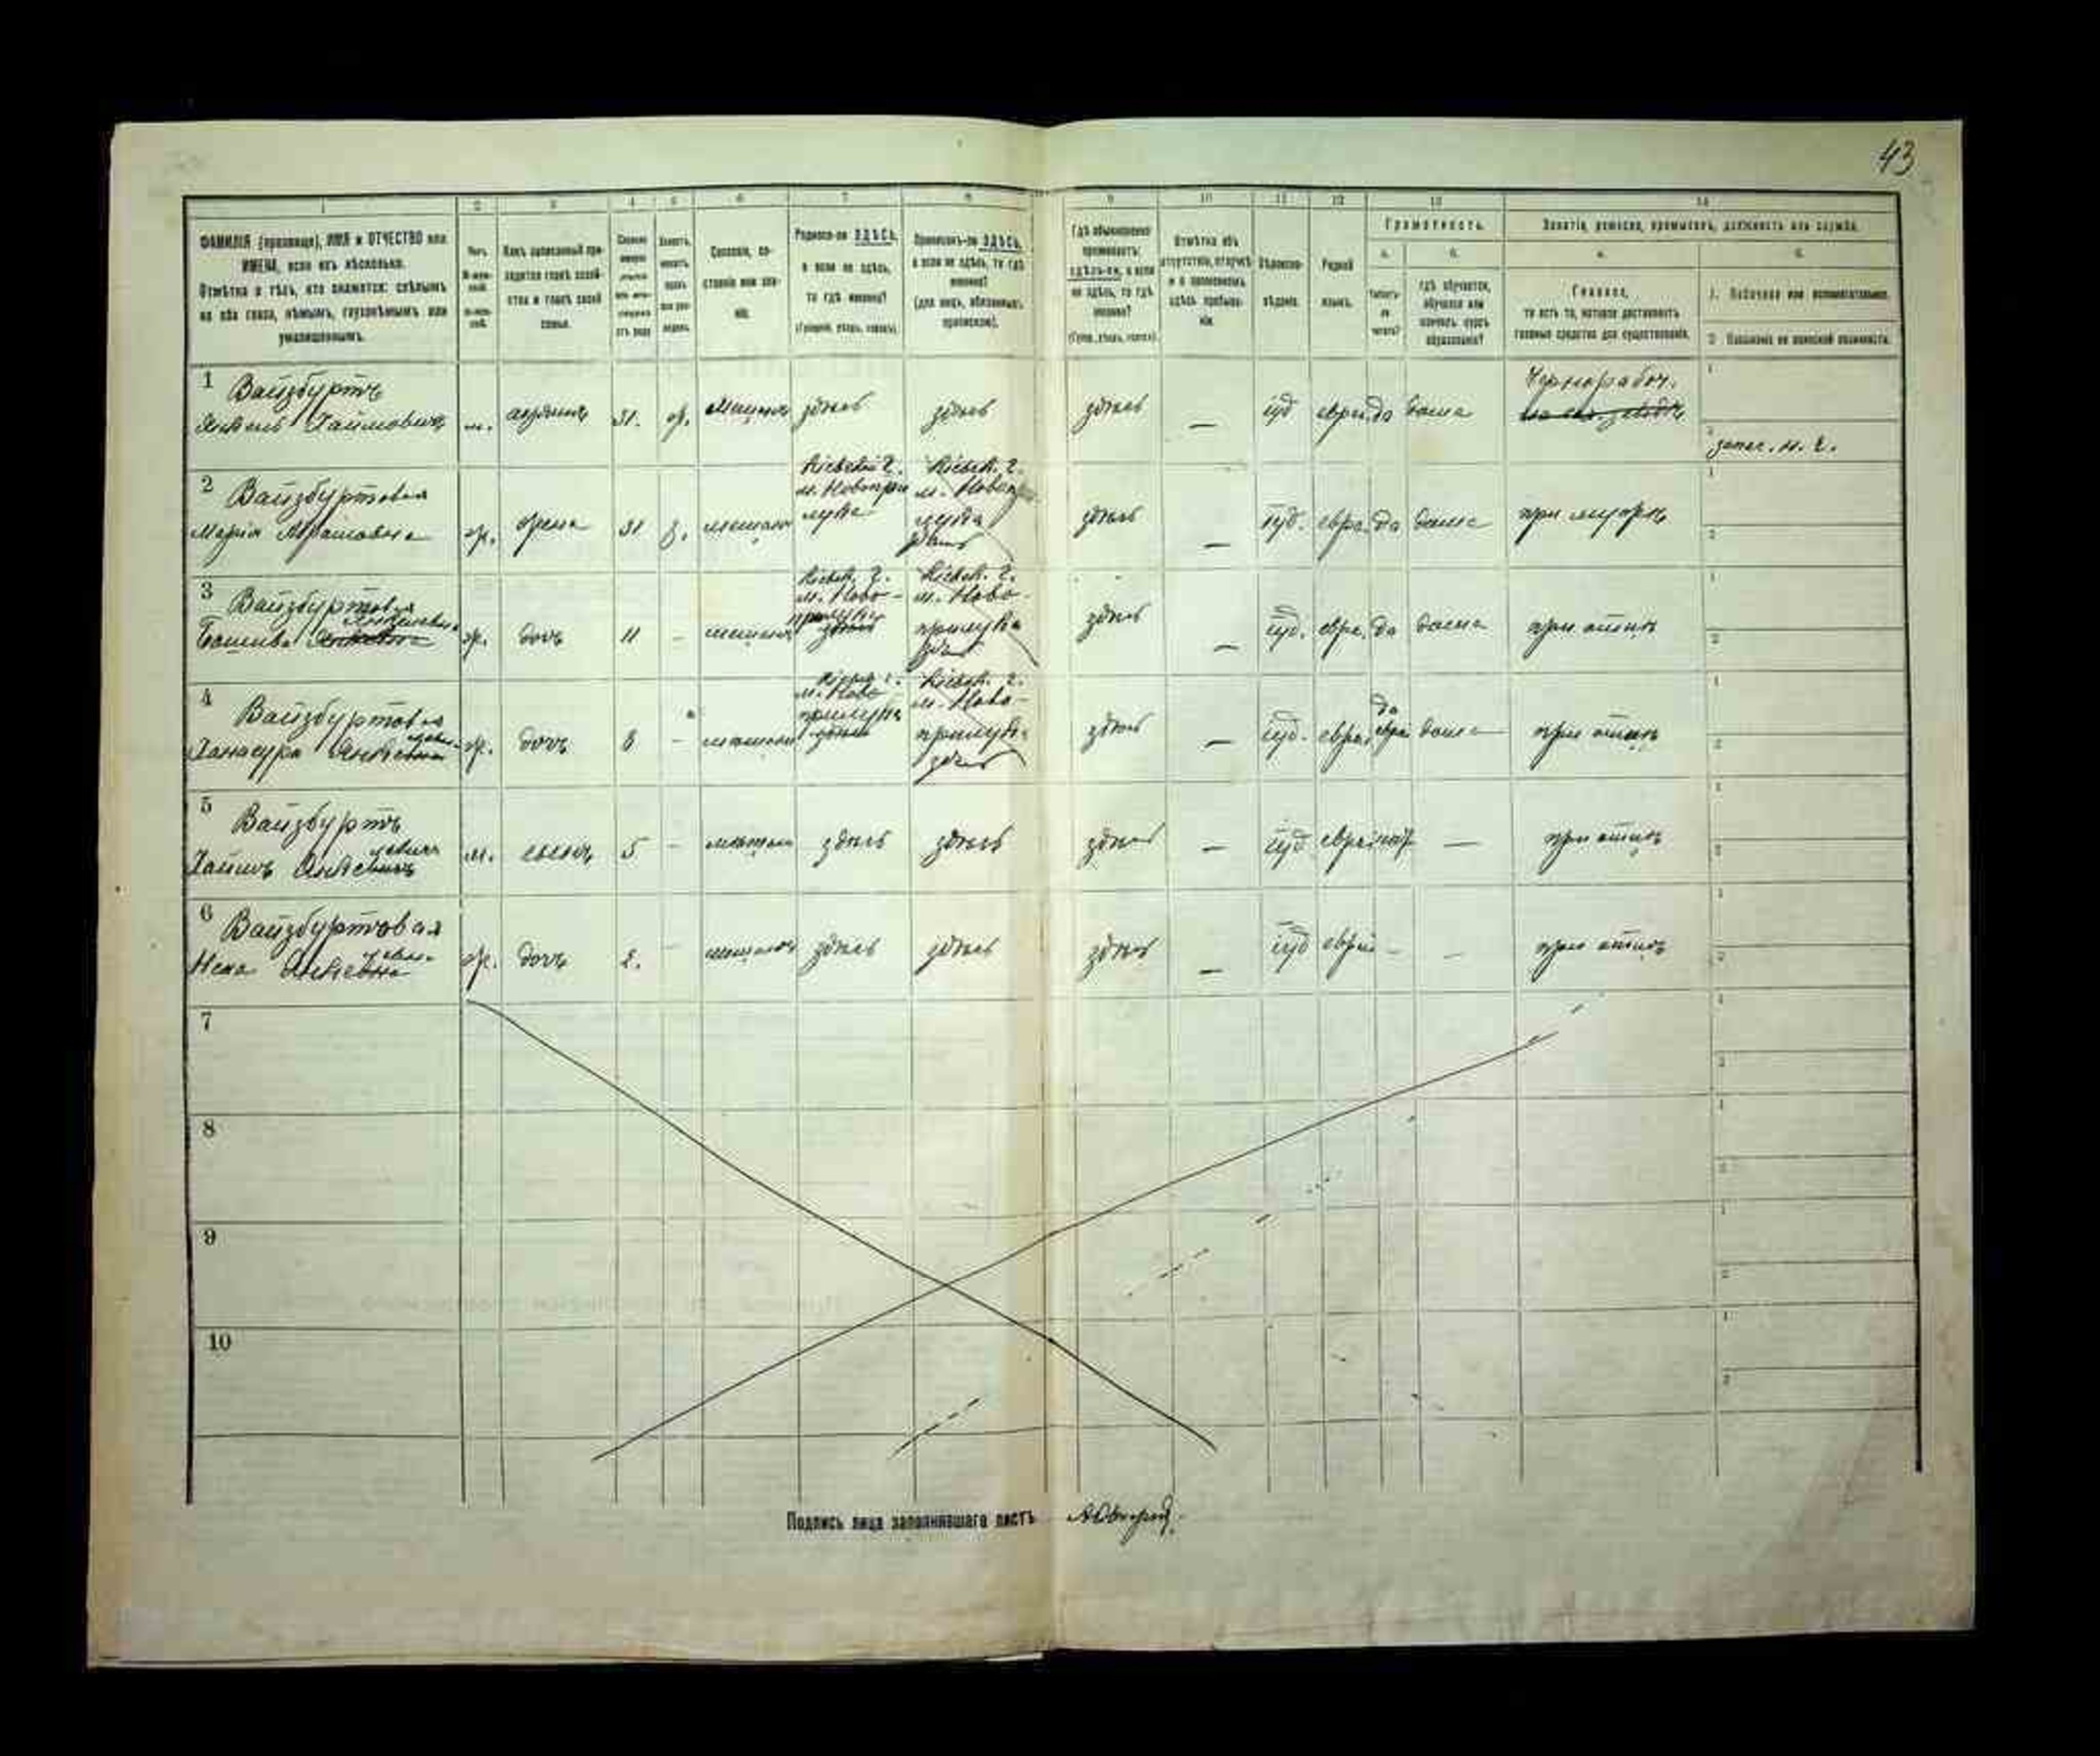 43
1 2 3 4 5 6 7 8 9 10 11 12 13 14
ФАМИЛІЯ (прозвище), ИМЯ и ОТЧЕСТВО или
ИМЕНА, если ихъ нѣсколько.
Отмѣтка о тѣхъ, кто окажется: слѣпымъ
на оба глаза, нѣмымъ, глухонѣмымъ или
умалишеннымъ.
Какъ записанный при-
ходится главѣ хозяй-
ства и главѣ своей
семьи.
Сословіе, со-
стояніе или зва-
ніе.
Родился-ли ЗДѢСЬ,
а если не здѣсь,
то гдѣ именно?
(Губернія, уѣздъ, городъ).
Приписанъ-ли ЗДѢСЬ,
а если не здѣсь, то гдѣ
именно?
(для лицъ, обязанныхъ
припиской).
Гдѣ обыкновенно
проживаетъ:
здѣсь-ли, а если
не здѣсь, то гдѣ
именно?
(Губ., уѣздъ, городъ).
Отмѣтка объ
отсутствіи, отлучкѣ
и о временномъ
здѣсь пребыва-
ніи.
Вѣроиспо-
вѣданіе.
Родной
языкъ.
Грамотность.
а. б.
Умѣетъ-
ли
читать?
гдѣ обучается,
обучался или
кончилъ курсъ
образованія?
Занятіе, ремесло, промыселъ, должность или служба.
а. б.
Главное,
то есть то, которое доставляетъ
главныя средства для существованія.
1. Побочное или вспомогательное.
2. Положеніе по воинской повинности.
1 Вайзбуртъ
Янкель Хаимовичъ м. хозяинъ 31. ж. мѣщан. здѣсь здѣсь здѣсь — іуд евр. да дома Чернорабоч.
запас. н. ч.
2 Вайзбуртовая
Марія Абрамовна ж. жена 31 з. мѣщан. Кіевской г. м. Новоприлука Кіевск. г. м. Новоприлука здѣсь здѣсь — іуд. евре. да дома при мужѣ
3 Вайзбуртовая
Янкелевна ж. дочь 11 - мѣщан. Кіевск. г. м. Ново-прилука здѣсь Кіевск. г. м. Ново-прилука здѣсь здѣсь — іуд. евре. да дома при отцѣ
4 Вайзбуртовая
Ханасура Янкелевна ж. дочь 8 - мѣщан. Кіевск. г. м. Ново-прилука здѣсь Кіевск. г. м. Ново-прилука здѣсь здѣсь — іуд. евре. да дома при отцѣ
5 Вайзбуртъ
Хаимъ Янкелевичъ м. сынъ 5 - мѣщан. здѣсь здѣсь здѣсь — іуд евре. нѣт — при отцѣ
6 Вайзбуртовая
Неха Янкелевна ж. дочь 2. - мѣщан. здѣсь здѣсь здѣсь — іуд евре. - - при отцѣ
7
8
9
10
Подпись лица заполнявшаго листъ